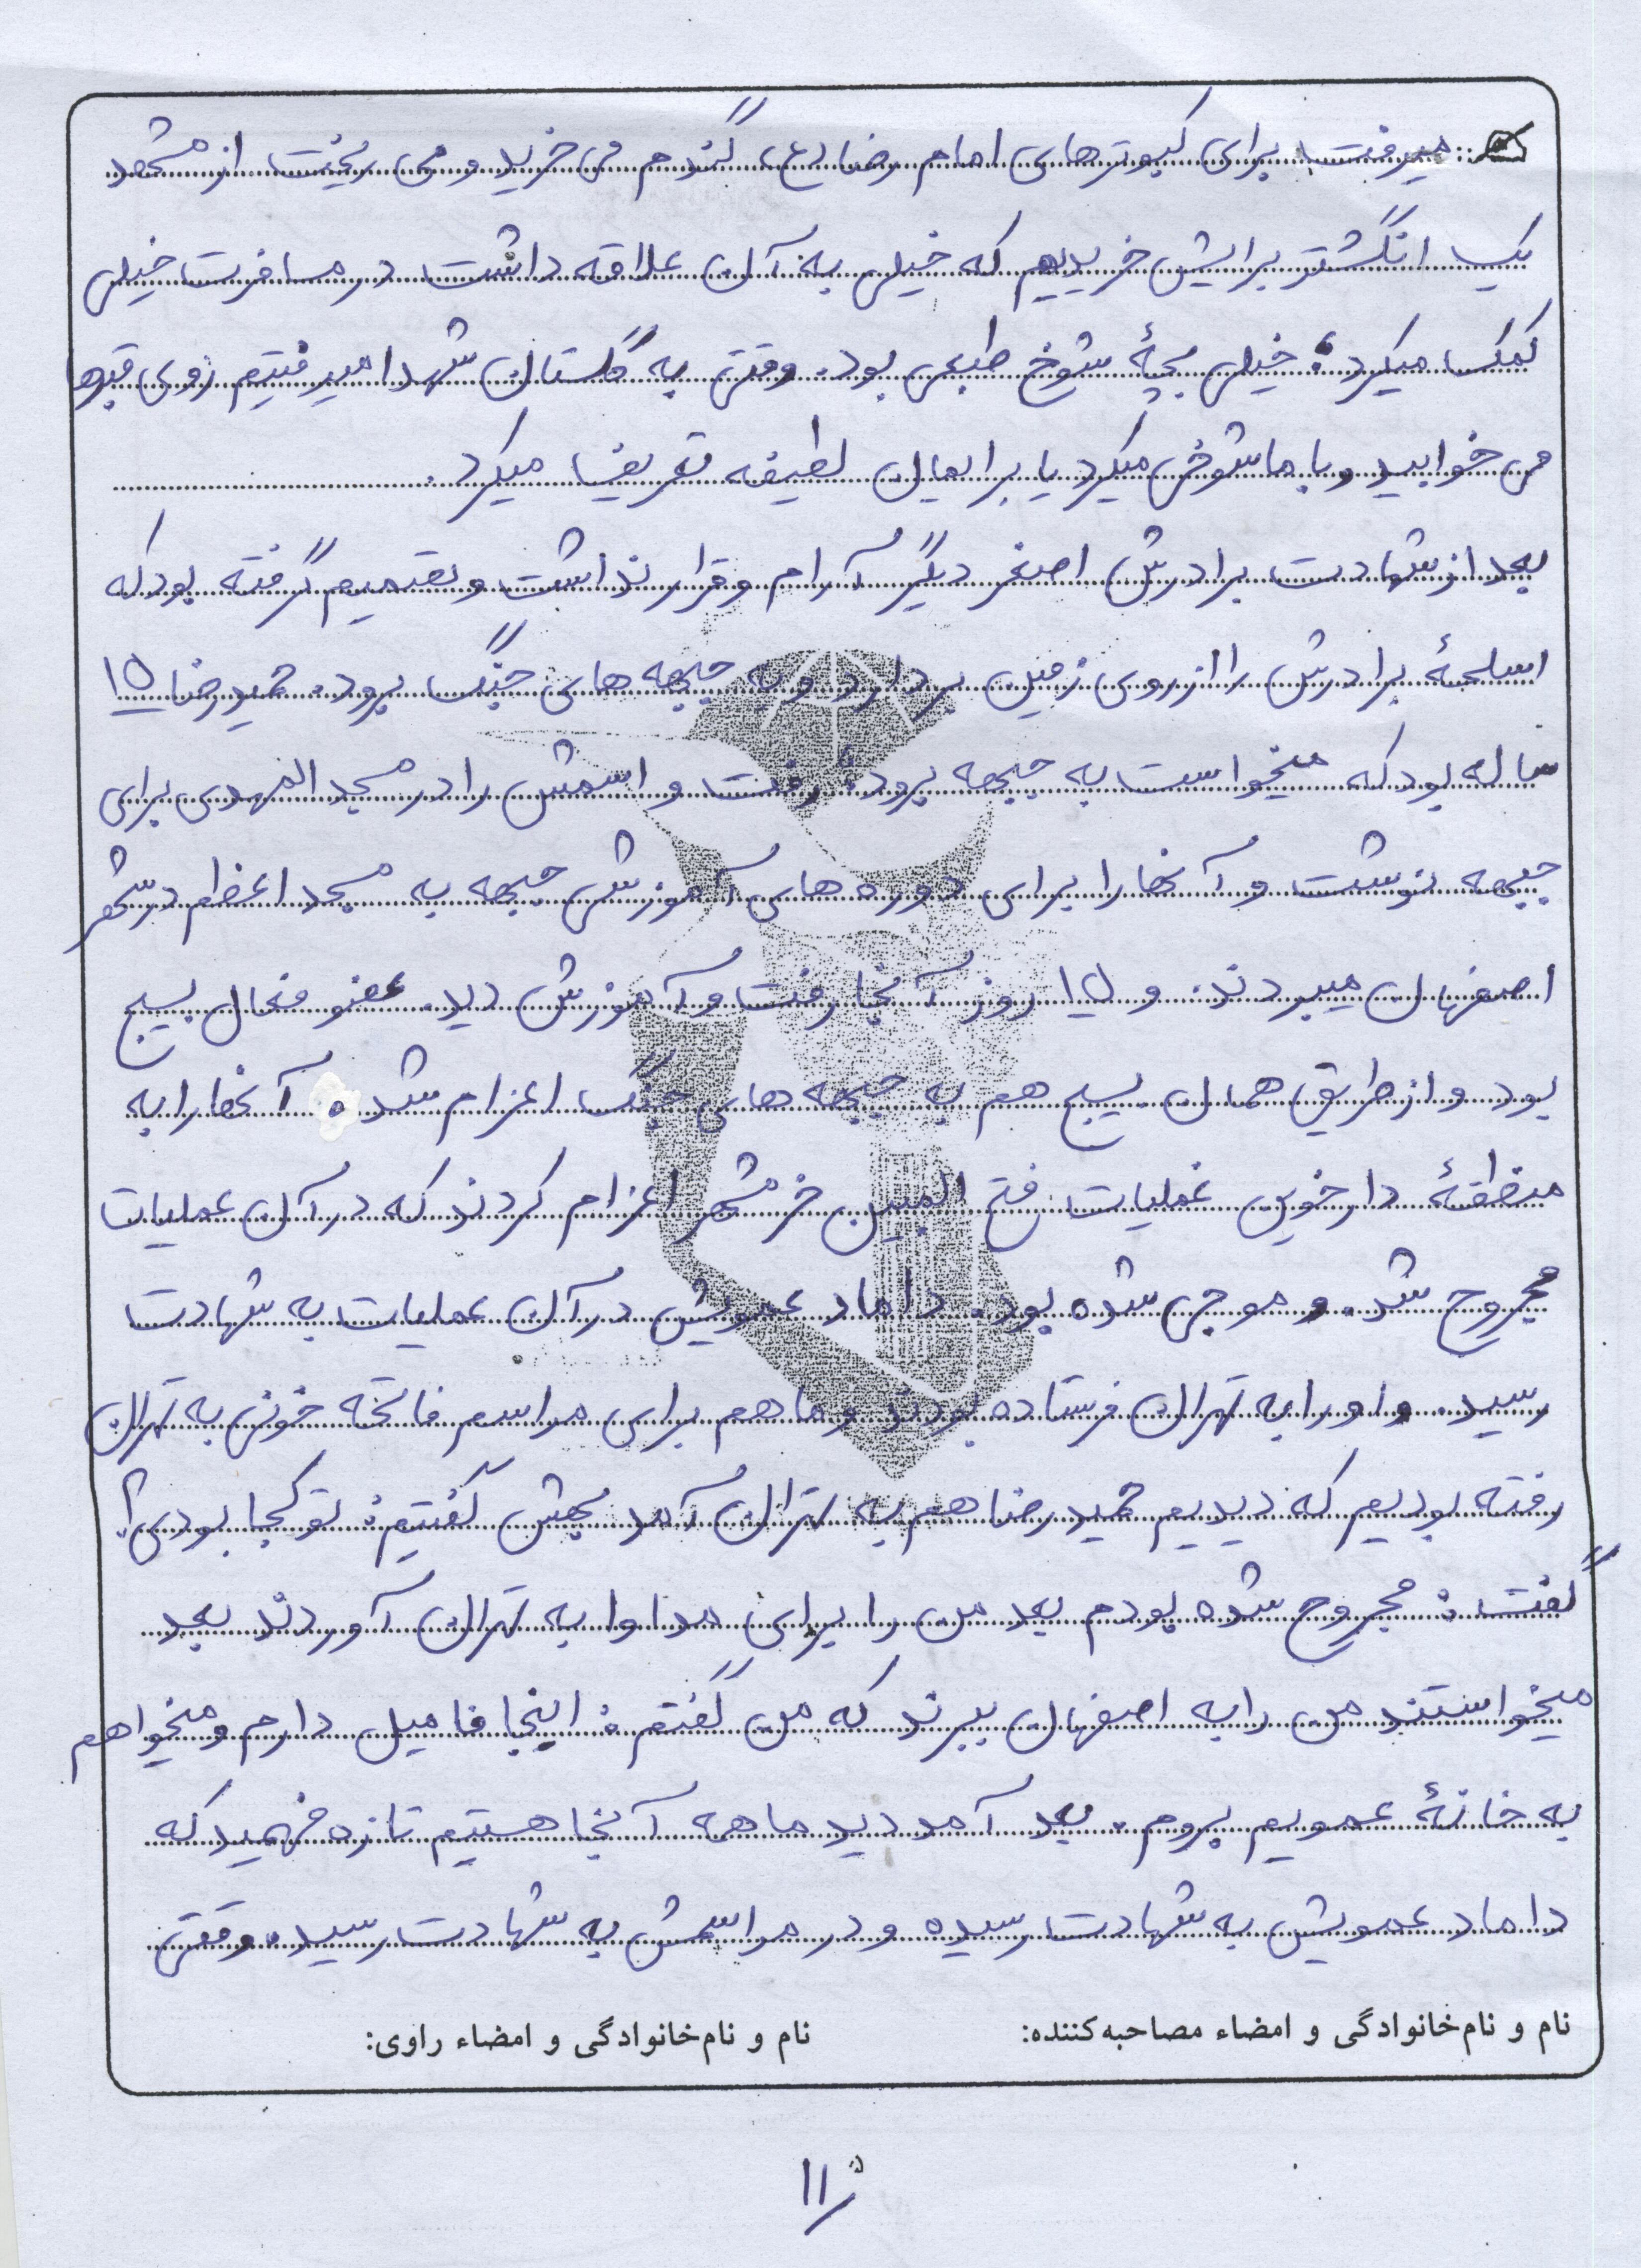 میرفت برای کبوترهای امام رضا (ع) گندم می خرید و می ریخت از مشهد
یک انگشتر برایش خریدیم که خیلی به آن علاقه داشت در مسافرت خیلی
کمک میکرد، خیلی بچهٔ شوخ طبعی بود. وقتی به گلستان شهدا میرفتیم روی قبرها
می خوابید و با ما شوخی میکرد یا برایمان لطیفه تعریف میکرد.
بعد از شهادت برادرش اصغر دیگر آرام و قرار نداشت و تصمیم گرفته بود که
اسلحهٔ برادرش را از روی زمین بردارد و به جبهه های جنگ برود. حمیدرضا ۱۵
ساله بود که میخواست به جبهه برود، رفت و اسمش را در مسجد المهدی برای
جبهه نوشت و آنها را برای دوره های آموزشی جبهه به مسجد اعظم در شهر
اصفهان میبردند. و ۱۵ روز آنجا رفت و آموزش دید. عضو فعال بسیج
بود و از طریق همان بسیج هم به جبهه های جنگ اعزام شد. آنها را به
منطقهٔ دارخوین عملیات فتح المبین خرمشهر اعزام کردند که در آن عملیات
مجروح شد. و موجی شده بود. داماد عمویش در آن عملیات به شهادت
رسید. و او را به تهران فرستاده بودند و ما هم برای مراسم فاتحه خونی به تهران
رفته بودیم که دیدیم حمیدرضا هم به تهران آمد بهش گفتیم: تو کجا بودی؟
گفت: مجروح شده بودم بعد من را برای مداوا به تهران آوردند بعد
میخواستند من را به اصفهان ببرند که من گفتم: اینجا فامیل دارم و میخواهم
به خانهٔ عمویم بروم. بعد آمد دید ما همه آنجا هستیم تازه فهمید که
داماد عمویش به شهادت رسیده و در مراسمش به شهادت رسید. وقتی
نام و نام‌خانوادگی و امضاء مصاحبه‌کننده: نام و نام‌خانوادگی و امضاء راوی: